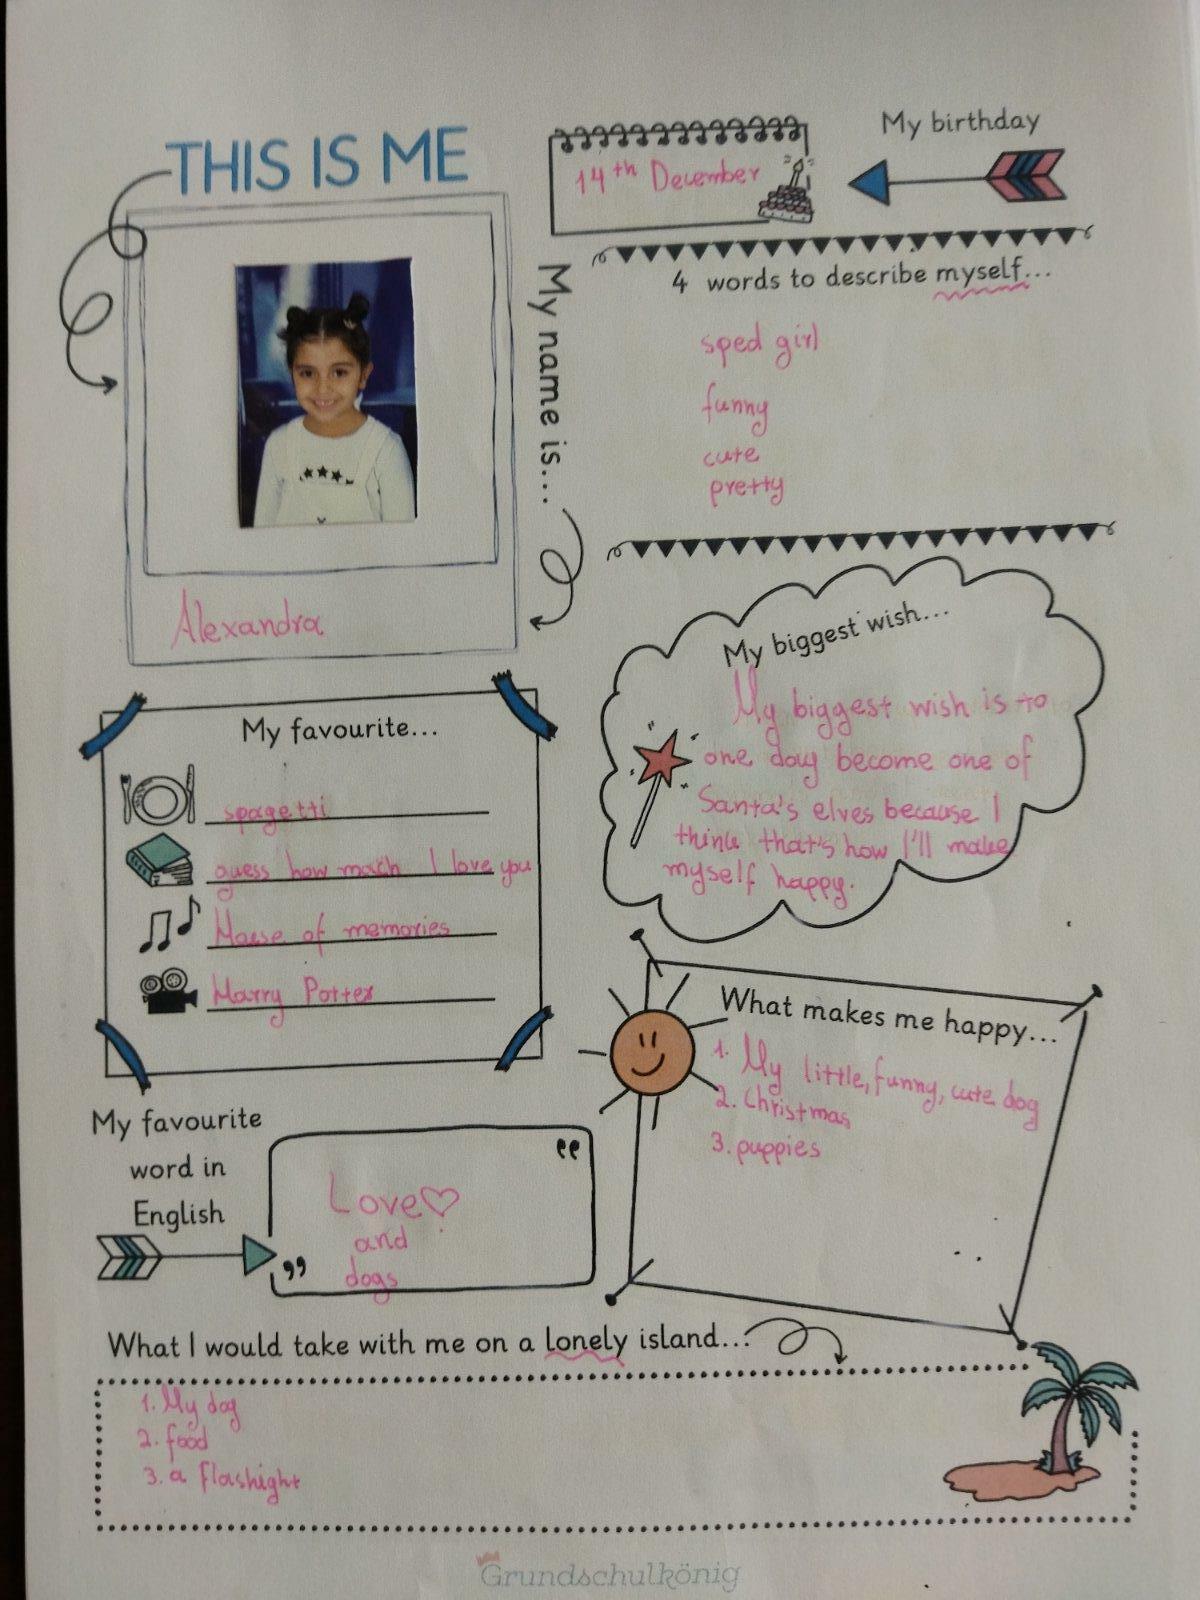 THIS IS ME
My name is...
Alexandra
My birthday
14th December
4 words to describe myself...
sped girl
funny
cute
pretty
My biggest wish...
My biggest wish is to
one day become one of
Santa's elves because I
think that's how I'll make
myself happy.
My favourite...
spagetti
guess how mach I love you
House of memories
Harry Potter
What makes me happy...
1. My little, funny, cute dog
2. Christmas
3. puppies
My favourite
word in
English
Love♡
and
dogs
What I would take with me on a lonely island...
1. My dog
2. food
3. a flashight
Grundschulkönig